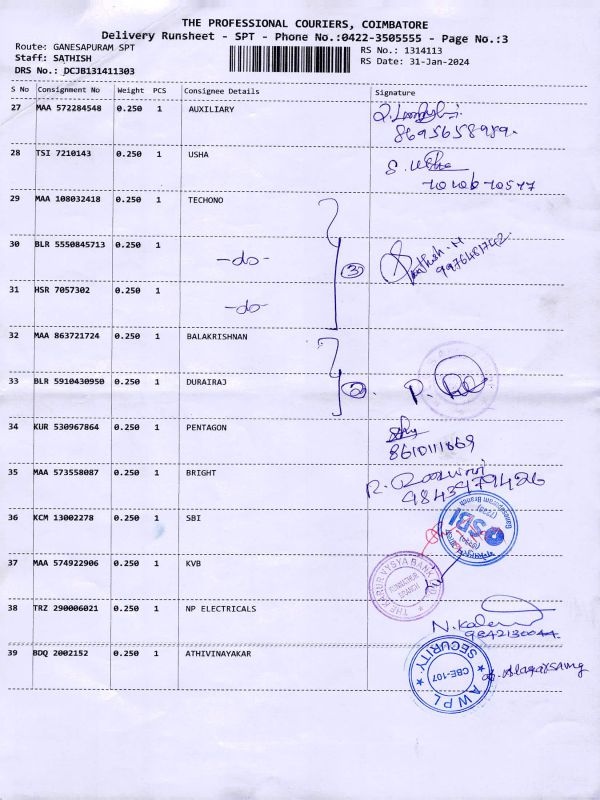 THE PROFESSIONAL COURIERS, COIMBATORE
Delivery Runsheet - SPT - Phone No.:0422-3505555 - Page No.:3
Route: GANESAPURAM SPT
Staff: SATHISH
DRS No.: DCJB131411303
RS No.: 1314113
RS Date: 31-Jan-2024
S No Consignment No Weight PCS Consignee Details Signature
27 MAA 572284548 0.250 1 AUXILIARY
8695658989.
28 TSI 7210143 0.250 1 USHA S. Usha
29 MAA 108032418 0.250 1 TECHONO
30 BLR 5550845713 0.250 1 -do- 3
31 HSR 7057302 0.250 1 -do-
32 MAA 863721724 0.250 1 BALAKRISHNAN
33 BLR 5910430950 0.250 1 DURAIRAJ 2
34 KUR 530967864 0.250 1 PENTAGON
8610111869
35 MAA 573558087 0.250 1 BRIGHT
9843979426
36 KCM 13002278 0.250 1 SBI SBI Ganesapuram Branch
37 MAA 574922906 0.250 1 KVB THE KARUR VYSYA BANK LTD BRANCH
38 TRZ 290006021 0.250 1 NP ELECTRICALS
9842130044
39 BDQ 2002152 0.250 1 ATHIVINAYAKAR SECURITY CBE-107 AWPL